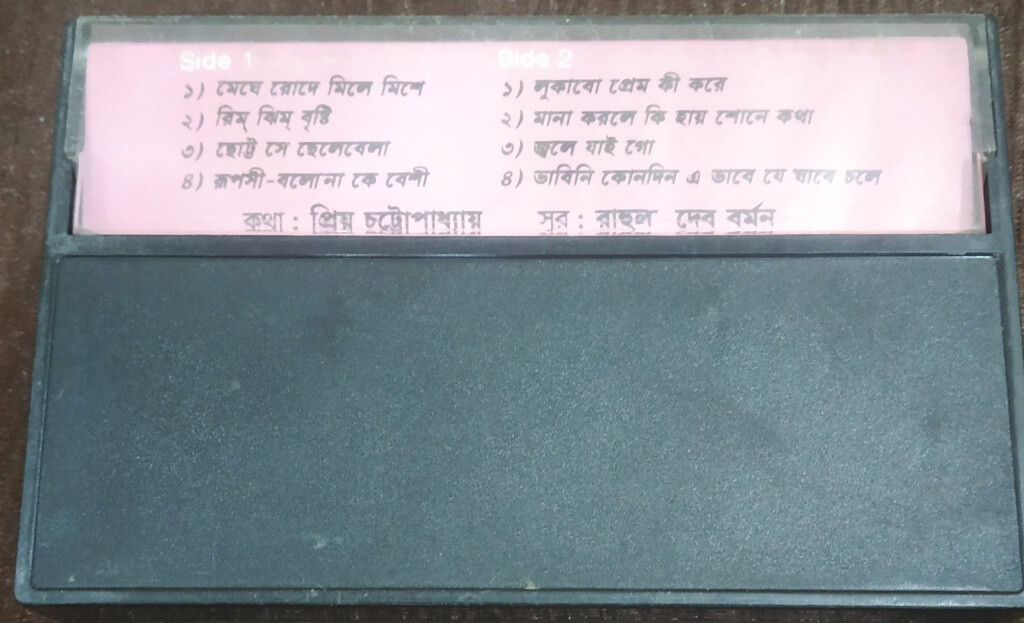 Side 1
১) মেঘে রোদে মিলে মিশে
২) রিম্ ঝিম্ বৃষ্টি
৩) ছোট্ট সে ছেলেবেলা
৪) রূপসী-বলোনা কে বেশী
Side 2
১) লুকাবো প্রেম কী করে
২) মানা করলে কি হায় শোনে কথা
৩) জ্বলে যাই গো
৪) ভাবিনি কোনদিন এ ভাবে যে যাবে চলে
কথা : প্রিয় চট্টোপাধ্যায় সুর : রাহুল দেব বর্মন